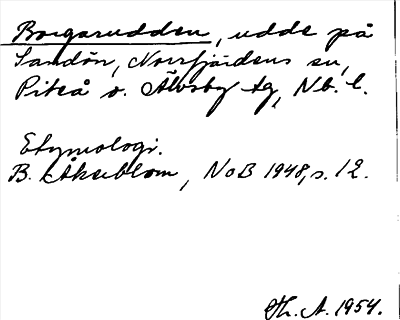 Borgarudden, udde på
Sandön, Norrfjärdens sn,
Piteå o. Älvsby tg, Nb. l.
Etymologi.
B. Åkerblom, NoB 1948, s. 12.
Th. A. 1954.